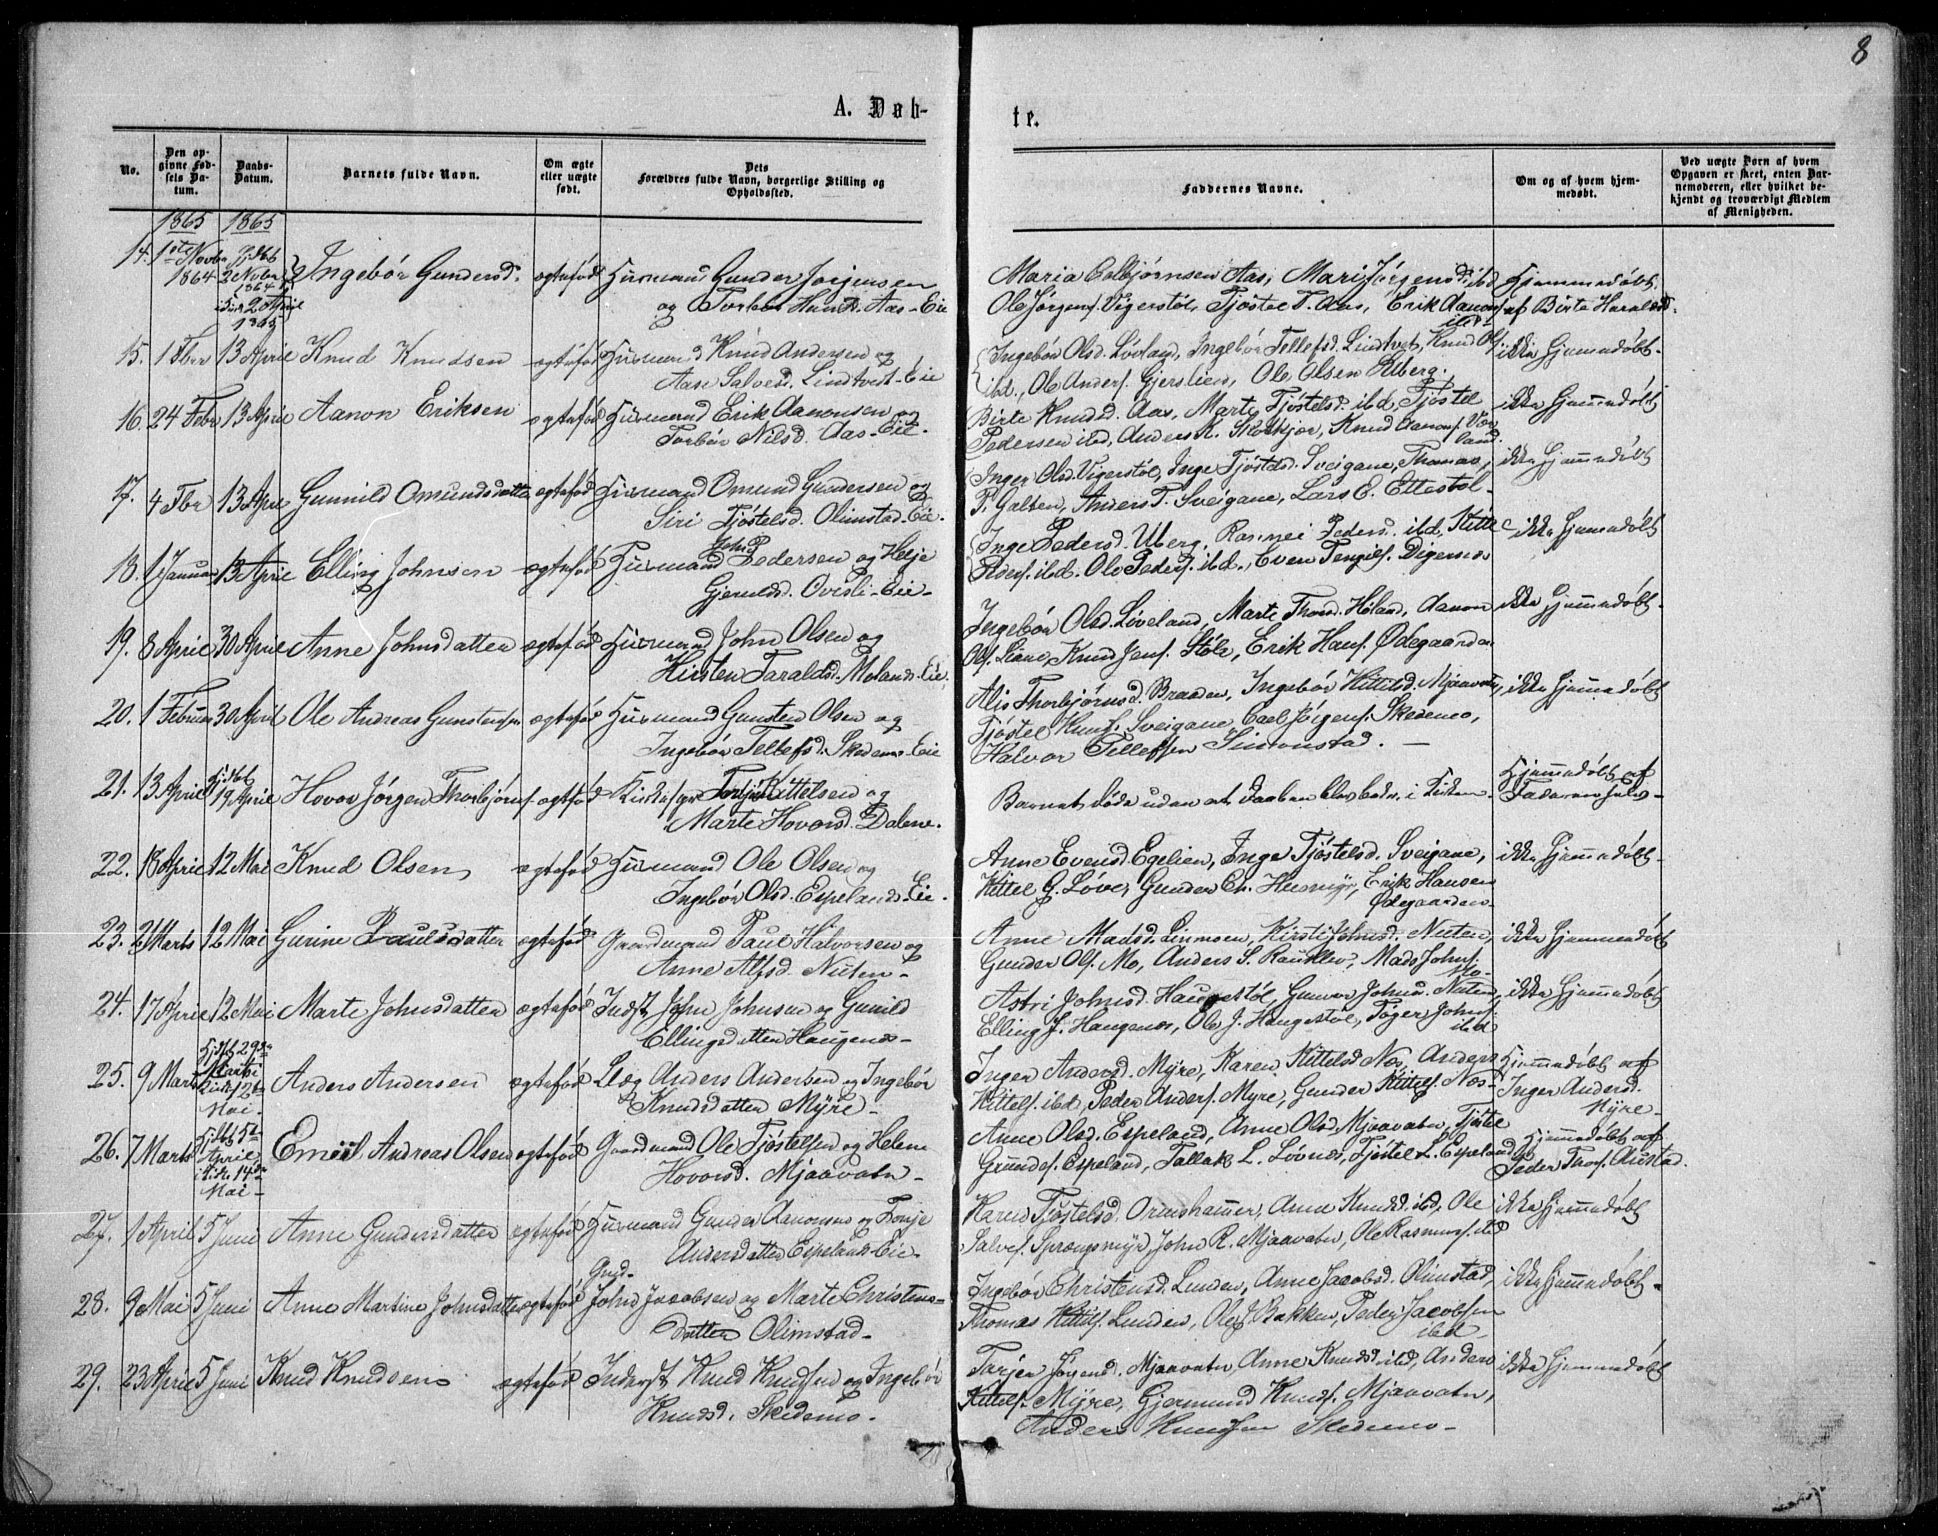 8
A. Døb-
te.
No.
Den op-
givne Fød-
sels Da-
tum.
Daabs-
Datum.
Barnets fulde Navn.
Om ægte
eller uægte
født.
Dets
Forældres fulde Navn, borgerlige Stilling og
Opholdssted.
Faddernes Navne.
Om og af hvem hjem-
medøbt.
Ved uægte Børn af hvem
Opgaven er skeet, enten Bar-
nemoderen, eller hvilket be-
kjendt og troværdigt Medlem
af Menigheden.
1865 1865
14. 1ste Novbr 1864 Hjdbt 2 Novbr 1864 i Kirk 2 April 1865 Ingebór Gundersd. ægtefød Huusmand Gunder Jørgensen
og Aas-Eie
Maria Aas, Mari Jørgensd. ibd
Ole Jørgens. Vigerstøl, Tjøstel T. Aas, Erik Aanons.
ibd-
Hjemmedøbt
af Birte Haraldsd.
15. 1 Fbr 13 April Knud Knudsen ægtefød Huusmand Knud Andersen og
Aase Salvesd. Lindtveit-Eie
Ingebór Olsd. Løvland, Ingebór Tellefsd. Lindtveit, Knud Ols.
ibd., Ole Anders. Gjerslien, Ole Olsen Uberg.
ikke Hjemmedøbt-
16. 24 Febr 13 April Aanon Eriksen ægtefød Huusmand Erik Aanonsen og
Torbór Nilsd. Aas-Eie-
Birte Knudsd. Aas, Marte Tjøstelsd. ibd, Tjøstel
Pedersen ibd, Anders K. Knud Aanons.
ikke Hjemmedøbt
17. 4 Fbr 13 April Gunnild Omundsdatter ægtefød Huusmand Omund Gundersen og
Siri Tjøstelsd. Olimstad-Eie-
Inger Olsd. Vigerstøl, Inge Tjøstelsd. Sveigane, Thomas
P. Galten, Anders T. Sveigane, Lars E. Ettestøl-
ikke Hjemmedøbt
18. 1 Januar 13 April Elling Johnsen ægtefød Huusmand John Pedersen og Helje
Gjeruldsd. Ovesli-Eie-
Inge Pedersd. Uberg, Rasmei Pedersd. ibd, Kittel
Peders. ibd. Ole Peders. ibd., Even Digernæs
ikke Hjemmedøbt
19. 8 April 30 April Anne Johnsdatter ægtefød Huusmand John Olsen og
Kirsten Taraldsd. Molands-Eie
Ingebór Olsd. Liveland, Marte Høland, Aanon
Ols. Liane, Knud Jens. Støle, Erik Hans. Ødegaarden
ikke Hjemmedøbt-
20. 1 Februar 30 April Ole Andreas Gunstensen ægtefød Huusmand Gunsten Olsen og
Ingebór Tellefsd. Skedemo-Eie
Alis Thorbjørnsd. Braaden, Ingebór Kittelsd. Mjaavatn,
Tjøstel Knuds. Sveigane, Carl Jørgens. Skedemo,
Halvor Tellefsen Simonstad. -
ikke Hjemmedøbt
21. 13 April Hjdbt 19 April Hovor Jørgen Thorbjørns. ægtefød Kirkesgr Torbjørn Kittelsen og
Marte Hovorsd. Dalene.
Barnet døde uden at Daaben blev bekr. i Kirken-
Hjemmedøbt af
Faderen selv-
22. 18 April 12 Mai Knud Olsen ægtefød Huusmand Ole Olsen og
Ingebór Olsd. Espelands-Eie.
Anne Evensd. Egelien, Inge Tjøstelsd. Sveigane,
Kittel G. Løve, Gunder Ch. Husmyr, Erik Hansen
Ødegaarden-
ikke Hjemmedøbt-
23. 2 Marts 12 Mai Gurine Paulsdatter ægtefød Gaardmand Paul Halvorsen og
Anne Alfsd. Nuten-
Anne Madsd. Linmoen, Kirsti Johnsd. Nuten,
Gunder Ols. Mo, Anders S. Rauklev, Mads Johns.
Mo-
ikke Hjemmedøbt
24. 17 April 12 Mai Marte Johnsdatter ægtefød Indst. John Johnsen og Gunild
Ellingsdatter Haugenes-
Astri Johnsd. Haugestøl, Gunvor Johnsd. Nuten,
Elling J. Haugenes, Ole J. Haugestøl, Tøger Johns.
ibd
ikke Hjemmedøbt
25. 9 Marts Hjdbt 29de Marts i Kirk 12te Mai- Anders Andersen ægtefød Læg Anders Andersen og Ingebór
Knudsdatter Myre-
Inger Andersd. Myre, Karen Kittelsd Næs, Anders
Kittels. ibd, Peder Anders. Myre, Gunder Kittels. Næs-
Hjemmedøbt af
Inger Andersd.
Myre-
26. 7 Marts Hjdbt 5te April i Kirk. 14de Mai- Emiel Andreas Olsen ægtefød Gaardmand Ole Tjøstelsen og Helene
Hovorsd. Mjaavatn-
Anne Olsd. Espeland, Anne Olsd. Mjaavatn, Tjøstel
Gundes. Espeland, Tallak L. Løvnes, Tjøstel L. Espeland
Hjemmedøbt af
Peder Thors. Austad.
27. 1 April 5 Juni Anne Gundersdatter ægtefød Huusmand Gunder Aanonsen og Torje
Andersdatter Espelands-Eie-
Karen Tjøstelsd. Ormshammer, Anne Knudsd ibd, Ole
Salves. Sprøngsmyr, John R. Mjaavatn, Ole Rasmuss. ibd
ikke Hjemmedøbt
28. 9 Mai 5 Juni Anne Martine Johnsdatter ægtefød Grd.
John Jacobsen og Marte Christens-
datter Olimstad-
Ingebór Christensd. Lunden, Anne Jacobsd. Olimstad,
Thomas Kittels. Lunden, Ole J. Bakken, Peder Jacobsen
ibd-
ikke Hjemmedøbt-
29. 23 April 5 Juni Knud Knudsen ægtefød Inderst Knud Knudsen og Ingebór
Knudsd. Skedemo-
Tarjer Jørgensd. Mjaavatn, Anne Knudsd ibd, Anders
Kittels. Myre, Gjermund Knuds. Mjaavatn,
Anders Knudsen Skedemo-
ikke Hjemmedøbt